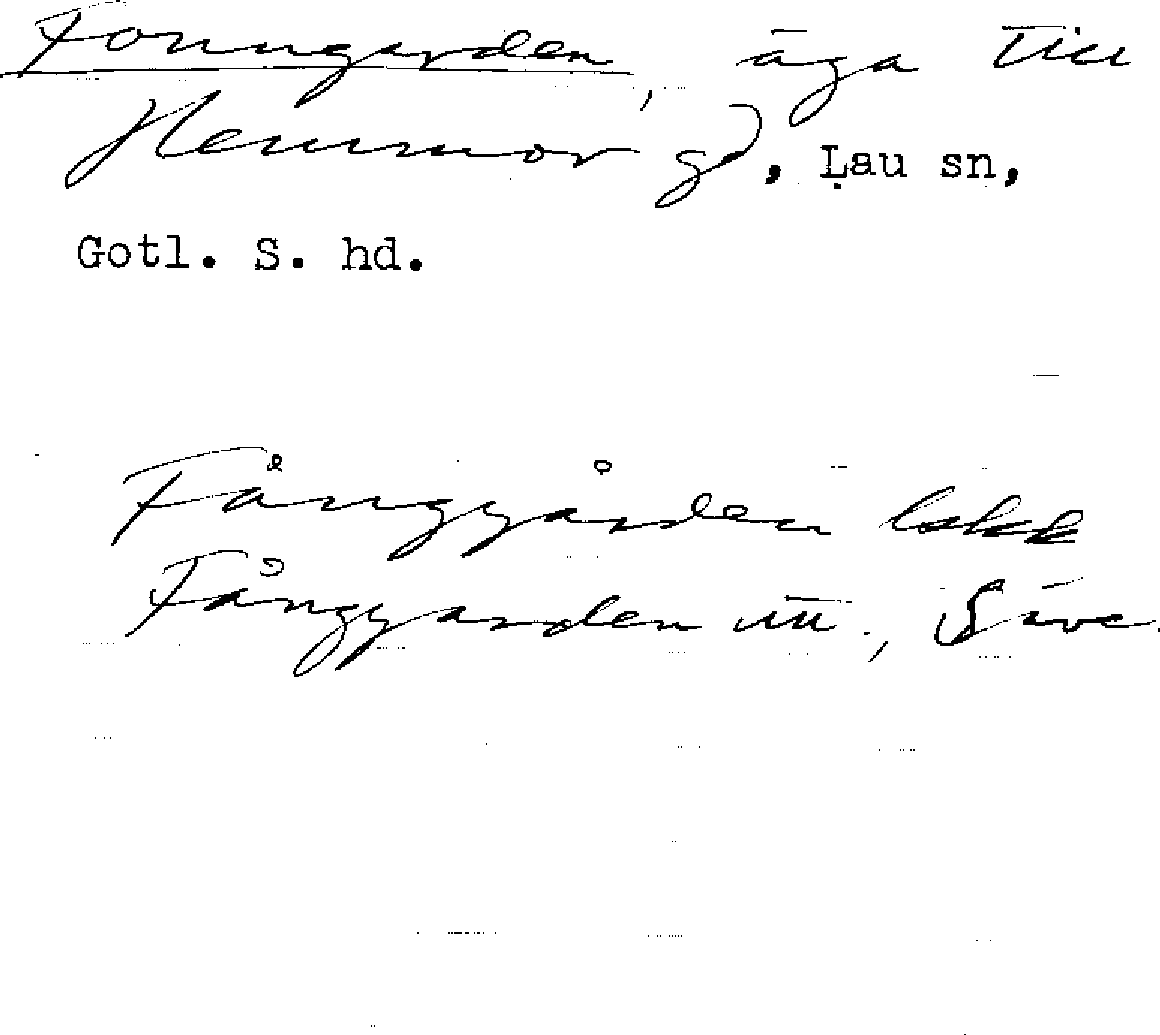 Fonngarden, äga till
Hemmor gd, Lau sn,
Gotl. S. hd.
Fånggården lskk
Fånggarden utt., Säve.